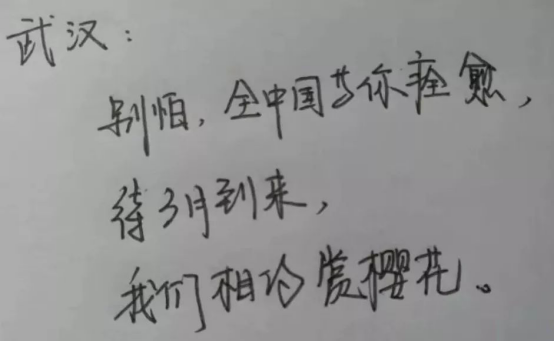 武汉：
别怕，全中国等你痊愈，
待3月到来，
我们相约赏樱花。